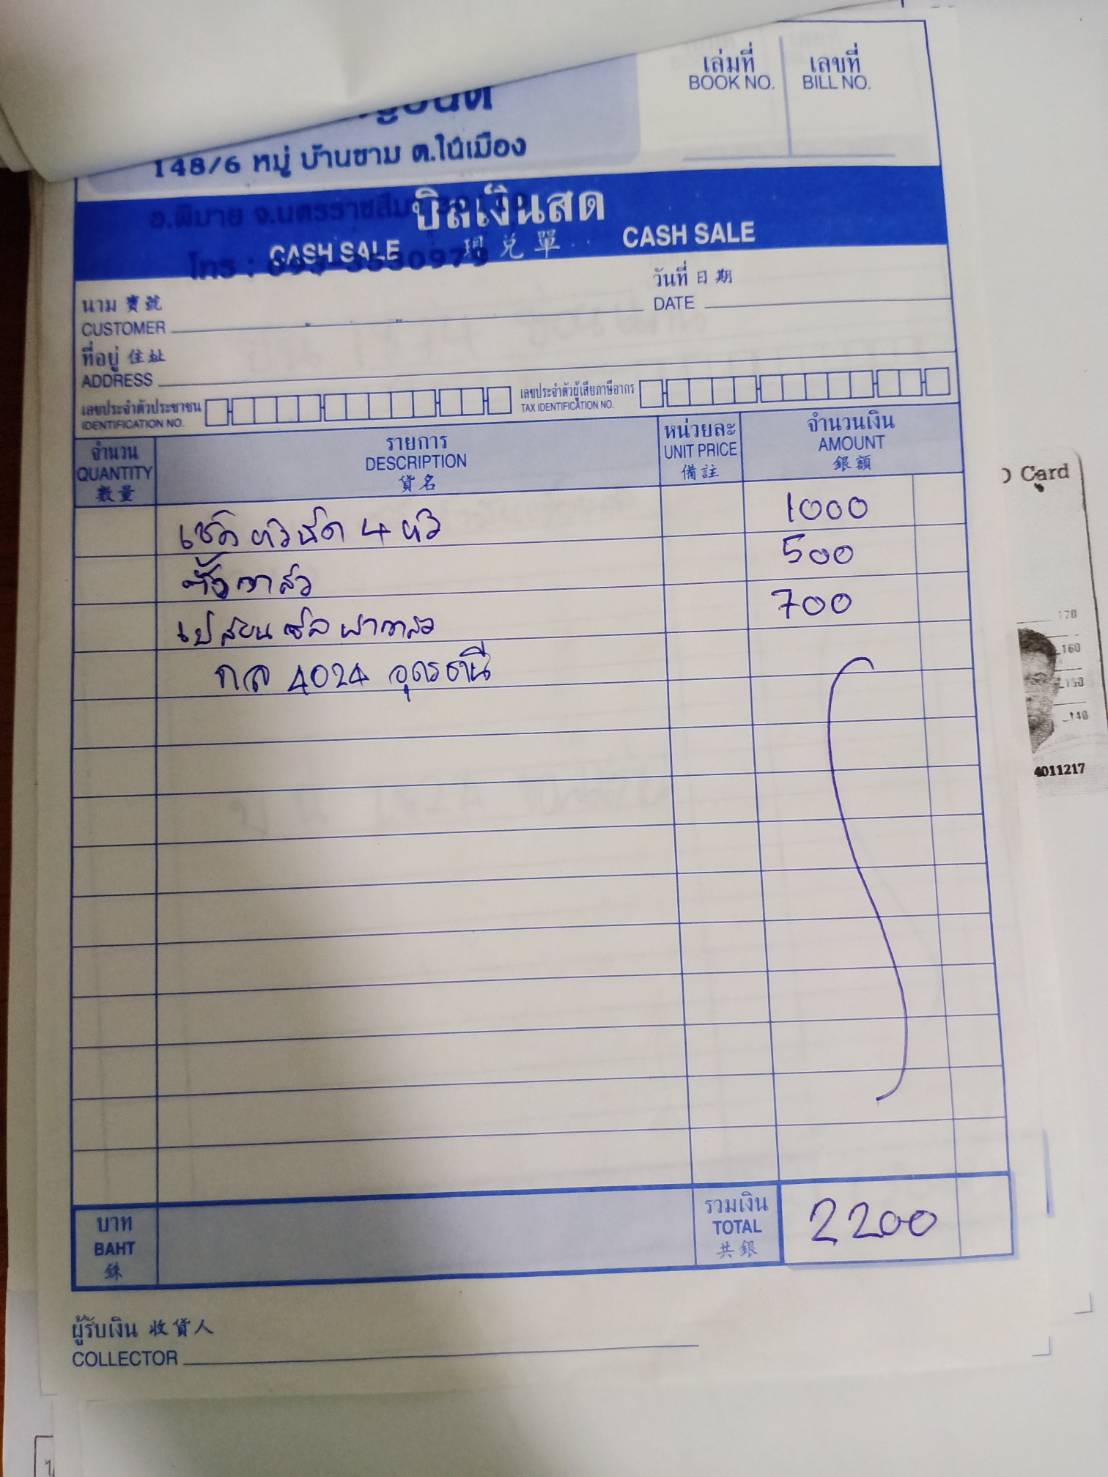 เล่มที่ เลขที่
BOOK NO. BILL NO.
148/6 หมู่ บ้านขาม ต.ในเมือง
อ.พิมาย จ.นครราชสีมา
บิลเงินสด
CASH SALE 現兌單 CASH SALE
โทร :
นาม 寶號 วันที่ 日期
CUSTOMER DATE
ที่อยู่ 住址
ADDRESS
เลขประจำตัวประชาชน เลขประจำตัวผู้เสียภาษีอากร
IDENTIFICATION NO. TAX IDENTIFICATION NO.
จำนวน รายการ หน่วยละ จำนวนเงิน
QUANTITY DESCRIPTION UNIT PRICE AMOUNT
數量 貨名 備註 銀額
เช็ค หัวฉีด 4 หัว 1000
ตั้งวาล์ว 500
เปลี่ยน ซีล ฝาวาล์ว 700
กล 4024 อุดรธานี
บาท รวมเงิน
BAHT TOTAL 2200
銖 共銀
ผู้รับเงิน 收貨人
COLLECTOR
Card
170
160
150
140
4011217